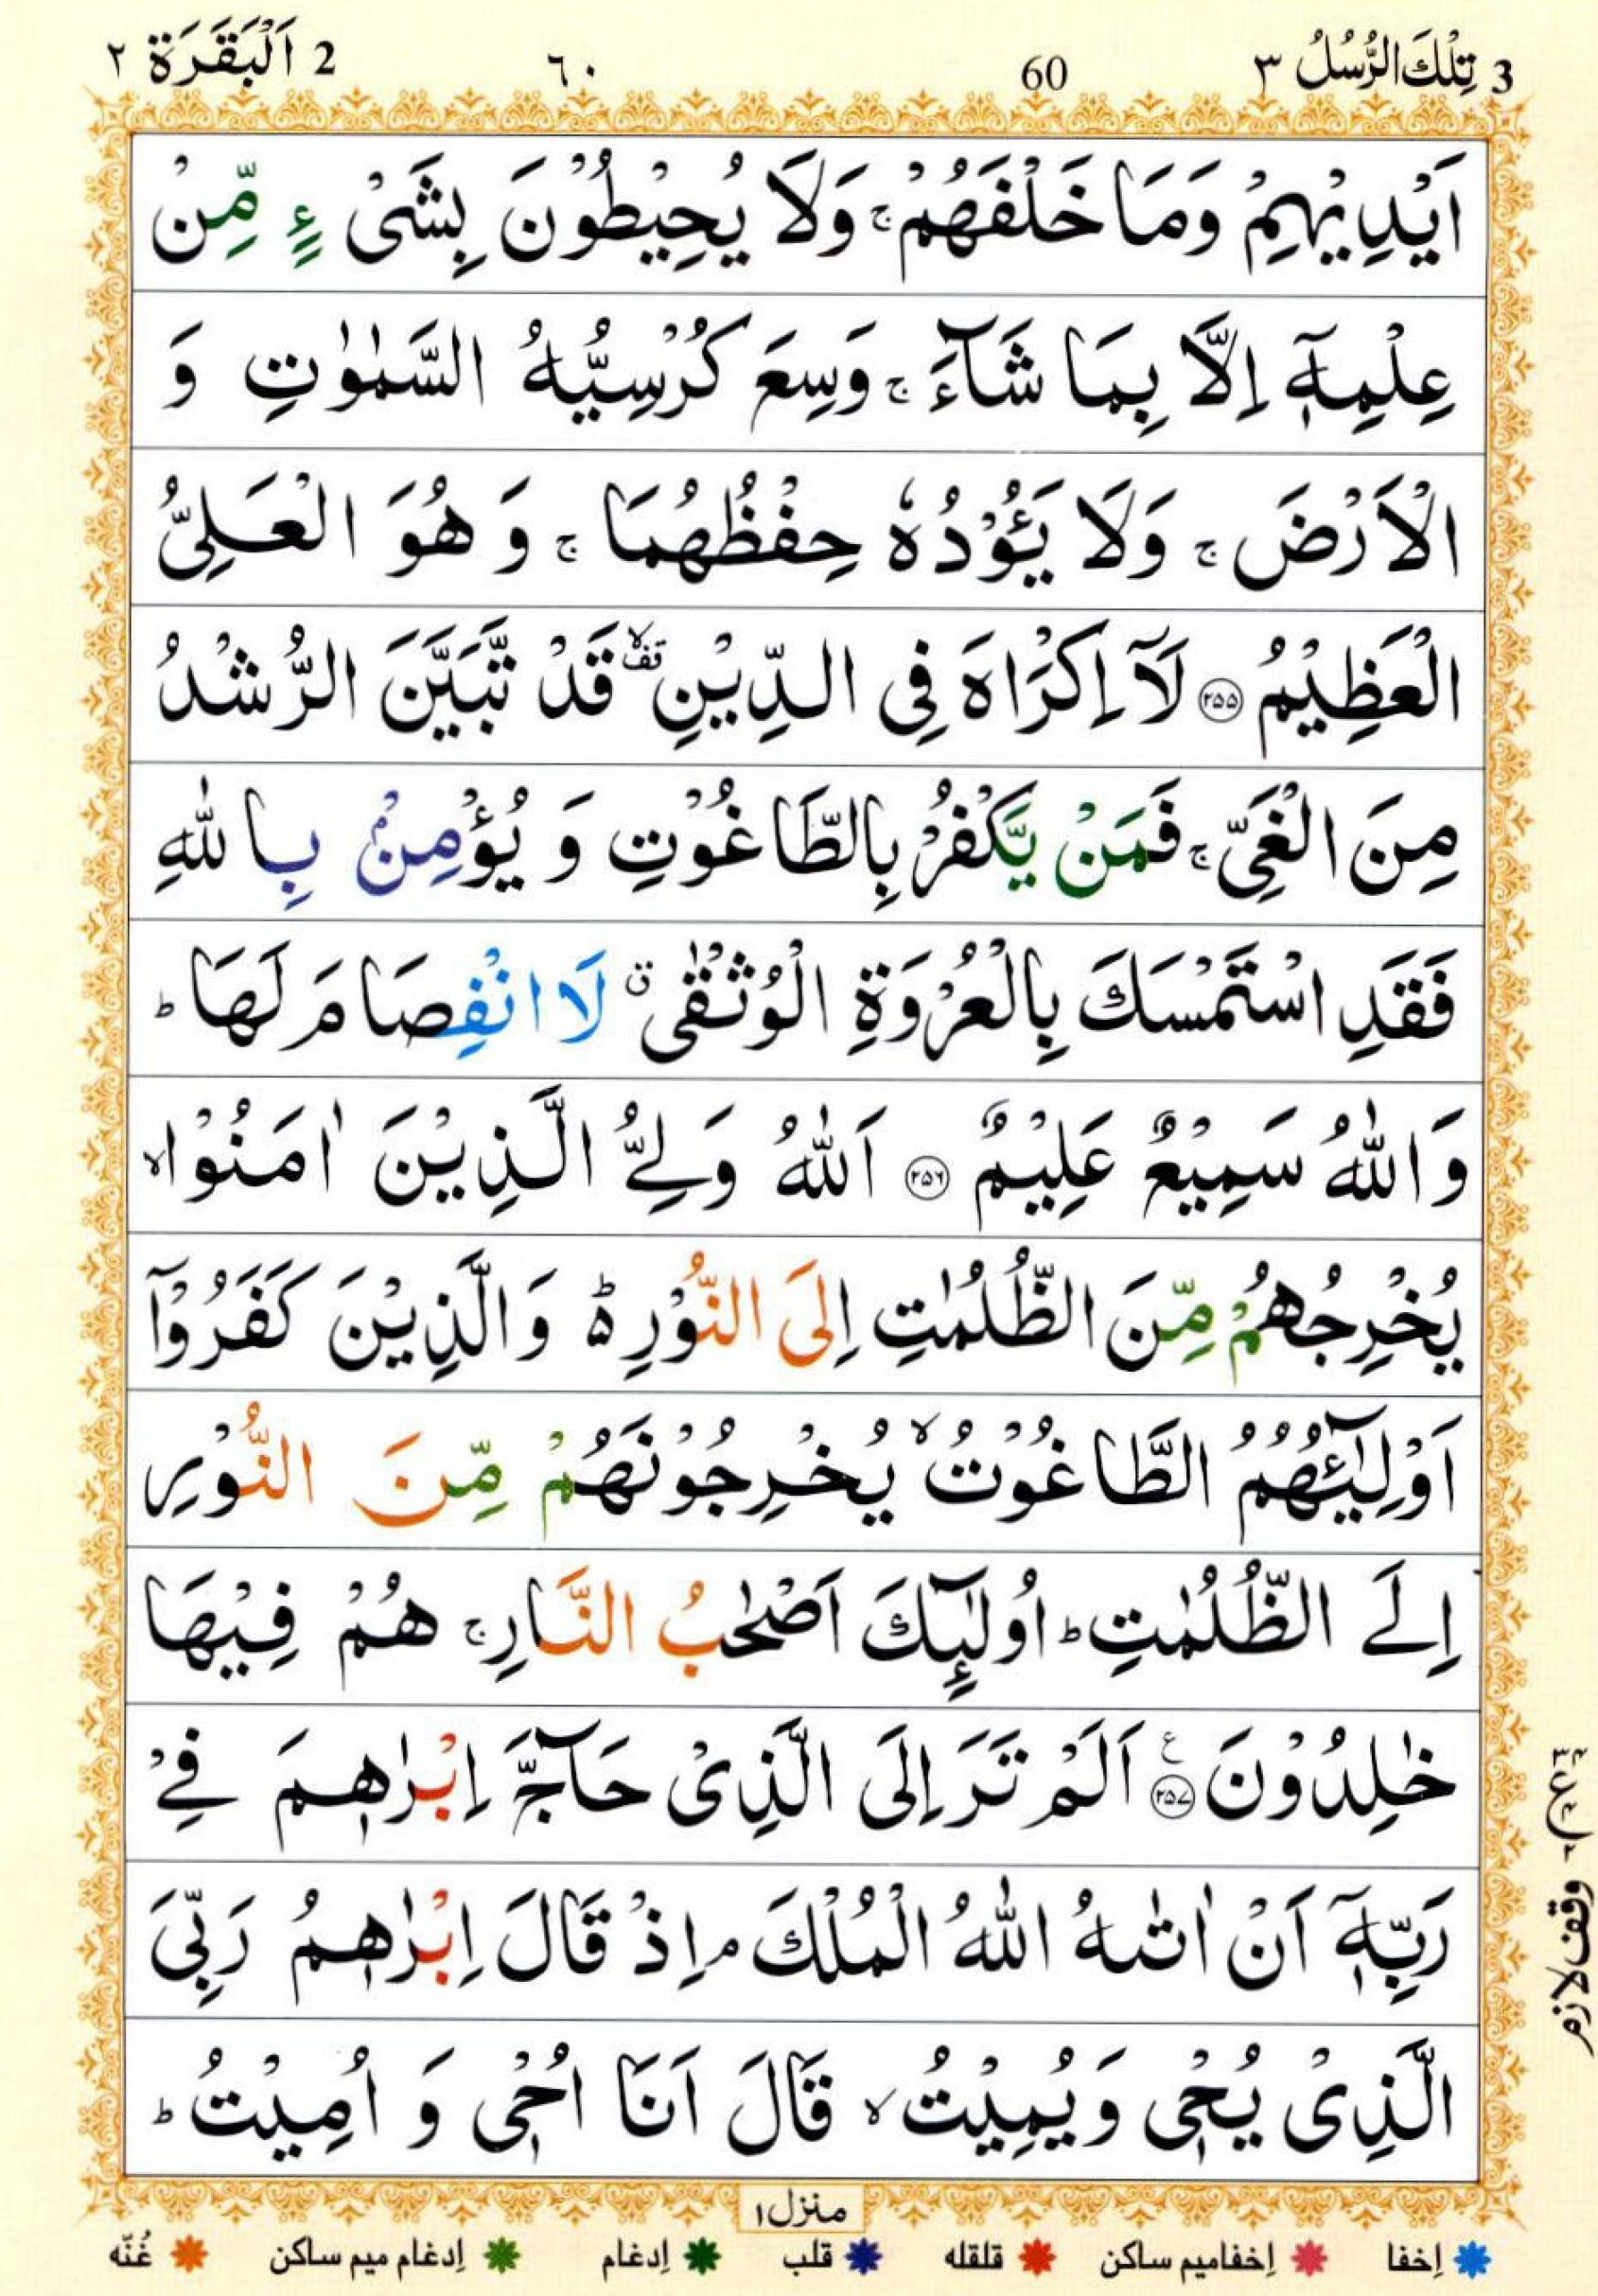 3 تِلْكَ الرُّسُلُ ٣ 60 ٦٠ 2 اَلْبَقَرَة ٢
اَيْدِيْهِمْ وَمَا خَلْفَهُمْ ۚ وَلَا يُحِيْطُوْنَ بِشَىْ ءٍ مِّنْ
عِلْمِهٖۤ اِلَّا بِمَا شَآءَ ۚ وَسِعَ كُرْسِيُّهُ السَّمٰوٰتِ وَ
الْاَرْضَ ۚ وَلَا يَـُٔوْدُهٗ حِفْظُهُمَا ۚ وَ هُوَ الْعَلِىُّ
الْعَظِيْمُ ۝٢٥٥ لَاۤ اِكْرَاهَ فِى الدِّيْنِ ࣞۙ قَدْ تَّبَيَّنَ الرُّشْدُ
مِنَ الْغَىِّ ۚ فَمَنْ يَّكْفُرْ بِالطَّاغُوْتِ وَ يُؤْمِنْۢ بِاللّٰهِ
فَقَدِ اسْتَمْسَكَ بِالْعُرْوَةِ الْوُثْقٰى ق لَا انْفِصَامَ لَهَا ؕ
وَاللّٰهُ سَمِيْعٌ عَلِيْمٌ ۝٢٥٦ اَللّٰهُ وَلِىُّ الَّذِيْنَ اٰمَنُوْا ۙ
يُخْرِجُهُمْ مِّنَ الظُّلُمٰتِ اِلَى النُّوْرِ ؕ۬ وَالَّذِيْنَ كَفَرُوْۤا
اَوْلِيٰٓـُٔهُمُ الطَّاغُوْتُ ۙ يُخْرِجُوْنَهُمْ مِّنَ النُّوْرِ
اِلَى الظُّلُمٰتِ ؕ اُولٰٓئِكَ اَصْحٰبُ النَّارِ ۚ هُمْ فِيْهَا
خٰلِدُوْنَ ۝٢٥٧ ع اَلَمْ تَرَ اِلَى الَّذِىْ حَآجَّ اِبْرٰهٖمَ فِىْ
رَبِّهٖۤ اَنْ اٰتٰىهُ اللّٰهُ الْمُلْكَ ۘ اِذْ قَالَ اِبْرٰهٖمُ رَبِّىَ
الَّذِىْ يُحْىٖ وَيُمِيْتُ ۙ قَالَ اَنَا اُحْىٖ وَ اُمِيْتُ ؕ
وقف لازم
منزل ١
اِخفا اِخفا میم ساکن قلقله قلب اِدغام اِدغام میم ساکن غُنّه